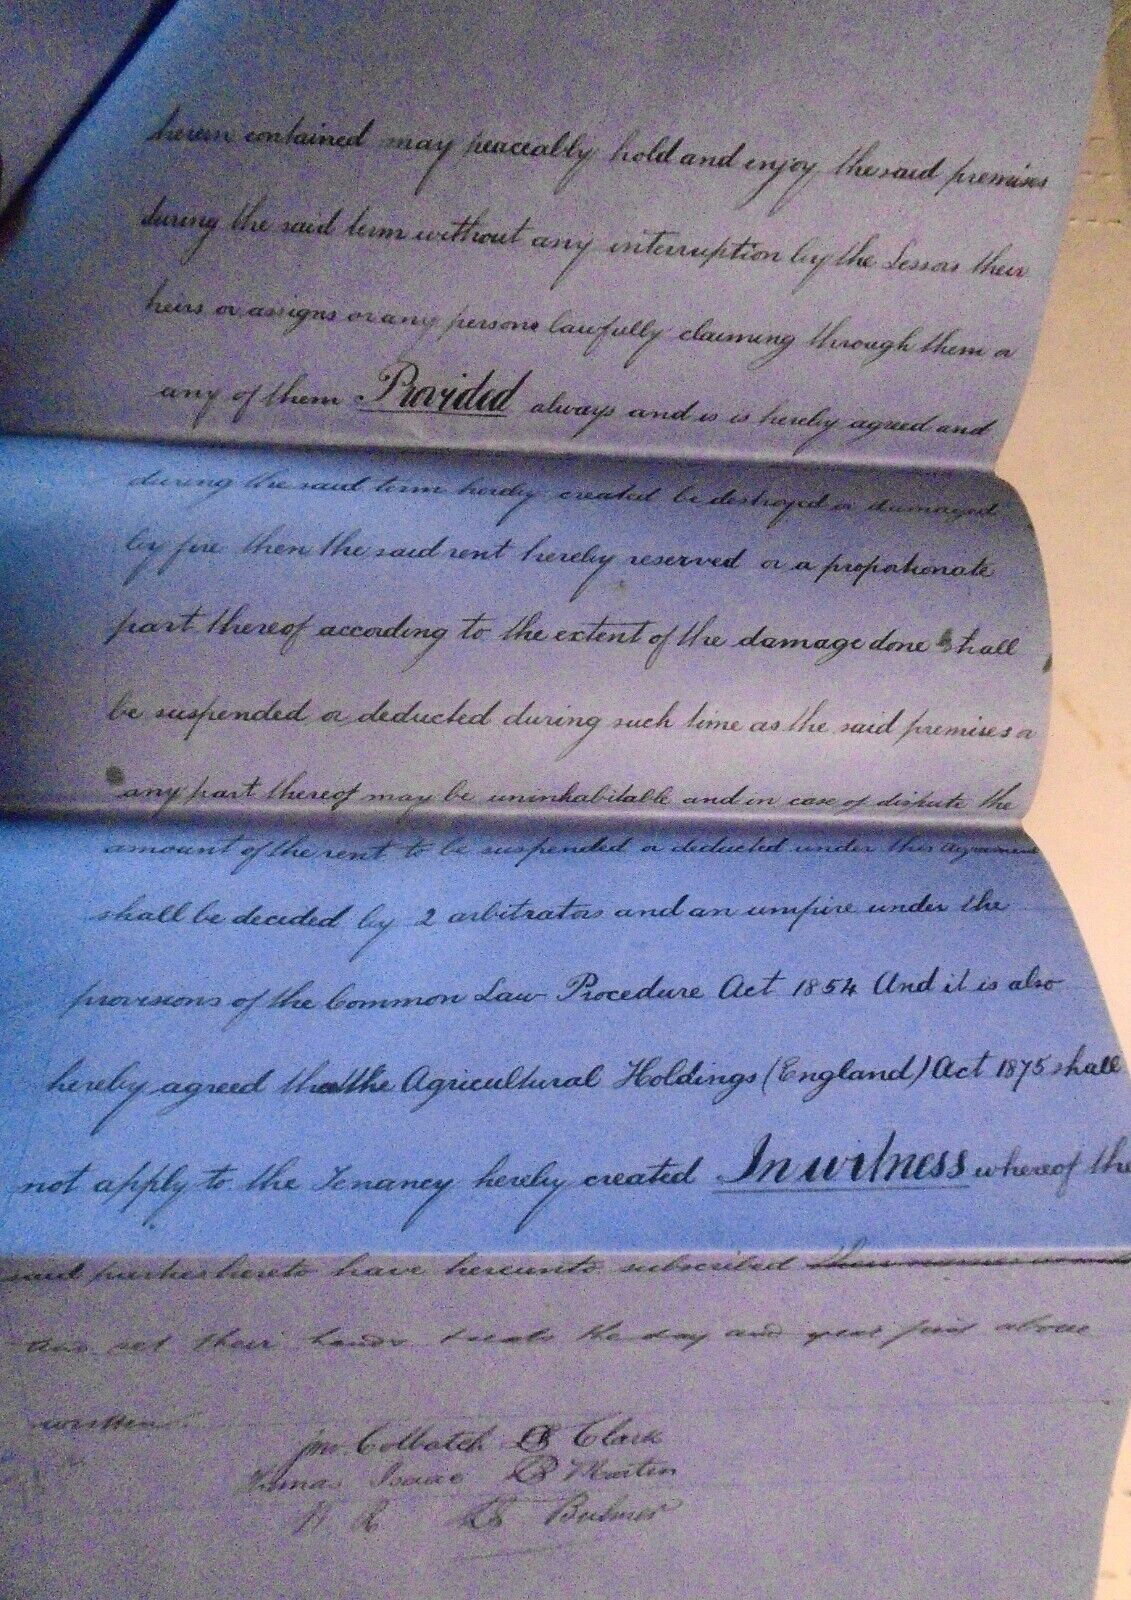 herein contained may peaceably hold and enjoy the said premises
during the said term without any interruption by the Lessors their
heirs or assigns or any persons lawfully claiming through them or
any of them Provided always and is is hereby agreed and
during the said term hereby created be destroyed or damaged
by fire then the said rent hereby reserved or a proportionate
part thereof according to the extent of the damage done shall
be suspended or deducted during such time as the said premises or
any part thereof may be uninhabitable and in case of dispute the
amount of the rent to be suspended or deducted under this agreement
shall be decided by 2 arbitrators and an umpire under the
provisions of the Common Law Procedure Act 1854 And it is also
hereby agreed that the Agricultural Holdings (England) Act 1875 shall
not apply to the Tenancy hereby created In witness whereof the
said parties hereto have hereunto subscribed their names
and set their hands & seals the day and year first above
written
Jno. Colbatch LS Clark
Thomas Isaac LS Marten
LS Bulmer